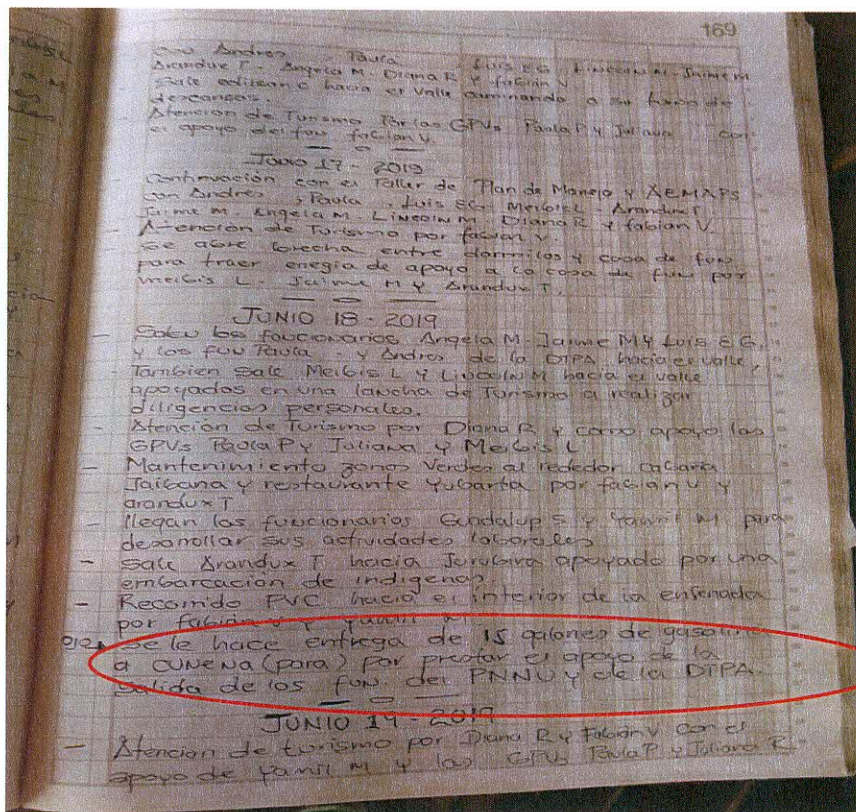 169
con Andres Paula Luis EG. Lincoln M - Jaime M
Arandux T. Angela M - Diana R y fabian V
Sale edilson c hacia el Valle caminando a su turno de
descansos.
Atencion de Turismo Por las GPVs Paula P Y Juliana con
el apoyo del fun fabian V.
— o —
Junio 17 - 2019
- Continuación con el Taller de Plan de Manejo y AEMAPS
con Andres, Paula, Luis EG. Meibis L - Arandux T,
Jaime M. Angela M - Lincoln M - Diana R y fabian V.
- Atención de Turismo por fabian V.
- Se abre brecha entre dormilos y casa de fun
para traer enegia de apoyo a la casa de fun por
meibis L. Jaime M Y Arandux T.
— o —
JUNIO 18 - 2019
- Salen los funcionarios Angela M - Jaime M Y Luis E G,
y los fun Paula - y Andres de la DTPA hacia el valle,
- Tambien Sale Meibis L Y Lincoln M hacia el valle
apoyados en una lancha de Turismo a realizar
diligencias personales.
- Atención de Turismo por Diana R y como apoyo las
GPVs Paola P Y Juliana y Meibis L
- Mantenimiento zonas Verdes al rededor cabaña
Jaibana y restaurante Yubarta por fabian V y
arandux T
- llegan los funcionarios Guadalup S y Yamil M para
desarrollar sus actividades laborales
- sale Arandux T hacia Jurubira apoyado por una
embarcación de indigenas.
- Recorrido PVC hacia el interior de la ensenada
por fabian V Y Yamil M.
se le hace entrega de 15 galones de gasolina
a CUNENA (para) por prestar el apoyo de la
Salida de los fun. del PNNU y de la DTPA.
— o —
JUNIO 19 - 2019
- Atencion de turismo por Diana R y Fabian V con el
apoyo de Yamil M Y las GPVs Paula P y Juliana R